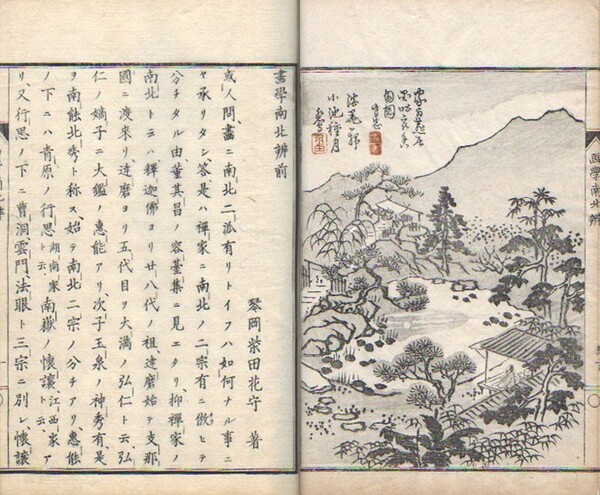 画學南北辨
畫學南北辨前
琴岡柴田花守 著
或人問、畫ニ南北二派有リトイフハ如何ナル事ニ
ヤ承リタシ、答、是ハ禪家ニ南北ノ二宗有ニ倣ヒテ
分チタル由、董其昌ノ容臺集ニ見エタリ、抑禪家ノ
南北トヨハ釋迦佛ヨリ廿八代ノ祖、達磨始テ支那
國ニ渡来リ、達磨ヨリ五代目ヲ大満ノ弘仁ト云、弘
仁ノ嫡子ニ大鑑ノ惠能アリ、次子玉泉ノ神秀有、是
ヲ南能北秀ト称ス、始テ南北二宗ノ分チアリ、惠能
ノ下ニハ青原ノ行思湖南家ト云、南嶽ノ懷讓江西家ト云ア
リ、又行思ノ下ニ曹洞雲門法眼ト三宗ニ別レ懷讓